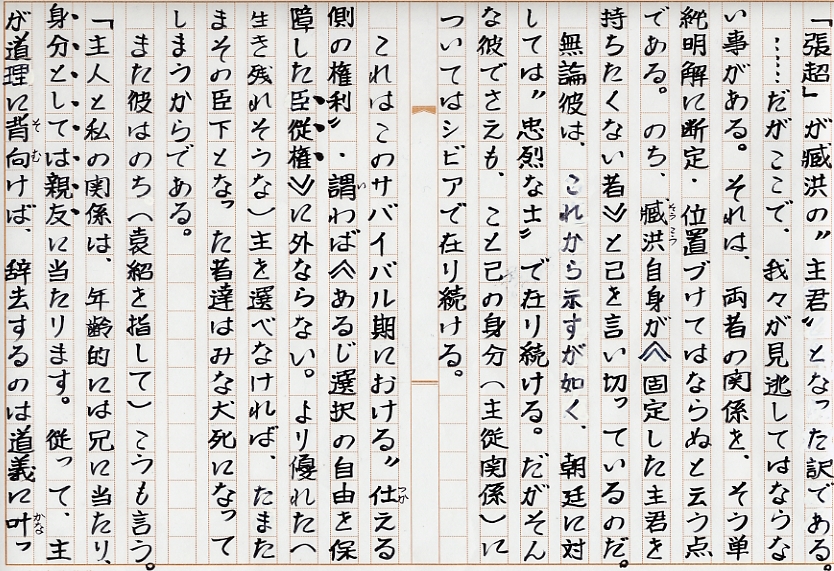 「張超」が臧洪の〝主君〟となった訳である。
……だがここで、我々が見逃してはならな
い事がある。それは、両者の関係を、そう単
純明解に断定・位置づけてはならぬと云う点
である。のち、臧洪自身が《固定した主君を
持ちたくない者》と己を言い切っているのだ。
無論彼は、これから示すが如く、朝廷に対
しては〝忠烈な士〟で在り続ける。だがそん
な彼でさえも、こと己の身分(主従関係)に
ついてはシビアで在り続ける。
これはこのサバイバル期における〝仕える
側の権利〟・謂わば《あるじ選択の自由を保
障した臣従権》に外ならない。より優れた(
生き残れそうな)主を選べなければ、たまた
まその臣下となった者達はみな犬死になって
しまうからである。
また彼はのち(袁紹を指して)こうも言う。
「主人と私の関係は、年齢的には兄に当たり、
身分としては親友に当たります。従って、主
が道理に背向けば、辞去するのは道義に叶っ